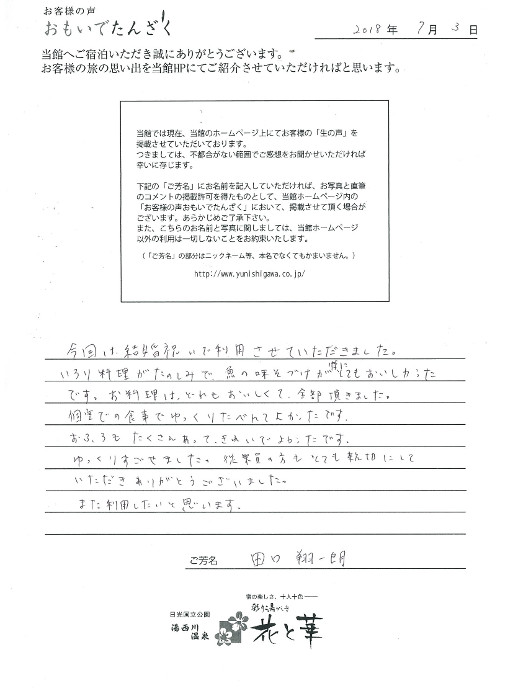 お客様の声
おもいでたんざく
2018年 7月 3日
当館へご宿泊いただき誠にありがとうございます。
お客様の旅の思い出を当館HPにてご紹介させていただければと思います。
当館では現在、当館のホームページ上にてお客様の「生の声」を
掲載させていただいております。
つきましては、不都合がない範囲でご感想をお聞かせいただければ
幸いに存じます。
下記の「ご芳名」にお名前を記入していただければ、お写真と直筆
のコメントの掲載許可を得たものとして、当館ホームページ内の
「お客様の声おもいでたんざく」において、掲載させて頂く場合が
ございます。あらかじめご了承下さい。
また、こちらのお名前と写真に関しましては、当館ホームページ
以外の利用は一切しないことをお約束いたします。
(「ご芳名」の部分はニックネーム等、本名でなくてもかまいません。)
http://www.yunishigawa.co.jp/
今回は、結婚祝いで利用させていただきました。
いろり料理がたのしみで、魚の味そづけが特にとてもおいしかった
です。お料理は、どれもおいしくて、全部頂きました。
個室での食事でゆっくりたべれてよかったです。
おふろもたくさんあって、きれいでよかったです。
ゆっくりすごせました。従業員の方もとても親切にして
いただきありがとうございました。
また利用したいと思います。
ご芳名 田口 翔一朗
宿の楽しさ、十人十色
彩り湯かしき
日光国立公園
湯西川
温泉
花と華